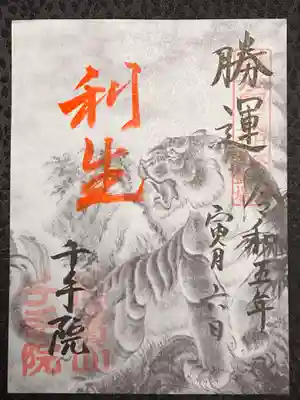 勝運
令和五年
寅月六日
利生
千手院